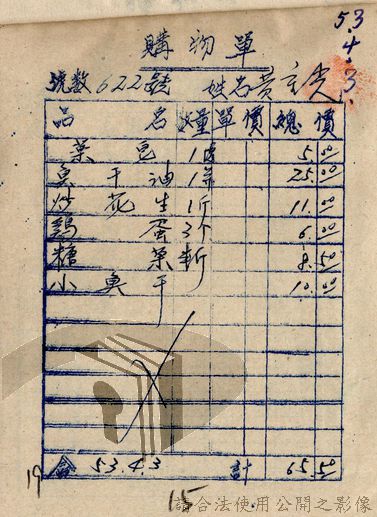 53.4.3.
購物單
號數622號 姓名黃
品名 數量 單價 總價
皂 1 5.00
魚干油 1 25.00
炒花生 1斤 11.00
鷄蛋 3个 6.00
糖菓 8.50
小魚干 10.00
53.4.3 計 65.50
19 15
請合法使用公開之影像